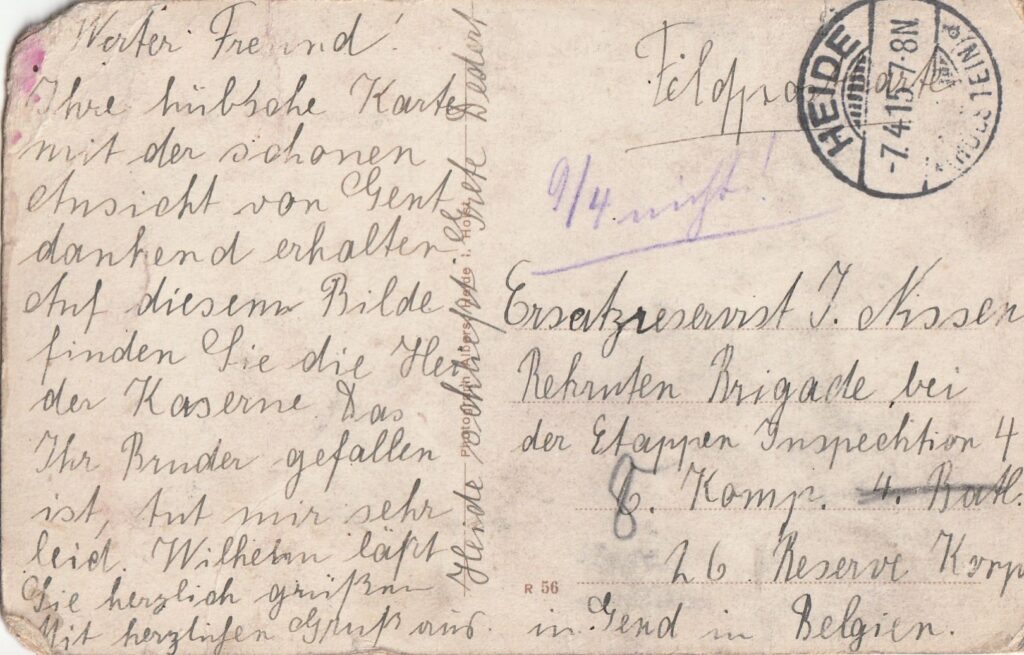 Werter Freund!
Ihre hübsche Karte
mit der schönen
Ansicht von Gent
dankend erhalten.
Auf diesem Bilde
finden Sie die
der Kaserne. Das
Ihr Bruder gefallen
ist, tut mir sehr
leid. Wilhelm läßt
Sie herzlich grüßen
Mit herzlichen Gruß aus
Heide Grete Dedert
Photograph Albers, Heide i. Holst.
R 56
Feldpostkarte
HEIDE
-7.4.15 7-8N
9/4 nicht!
Ersatzreservist J. Nissen
Rekruten Brigade bei
der Etappen Inspecktion 4
8. Komp. 4. Batl.
26 Reserve Korp
in Gend in Belgien.